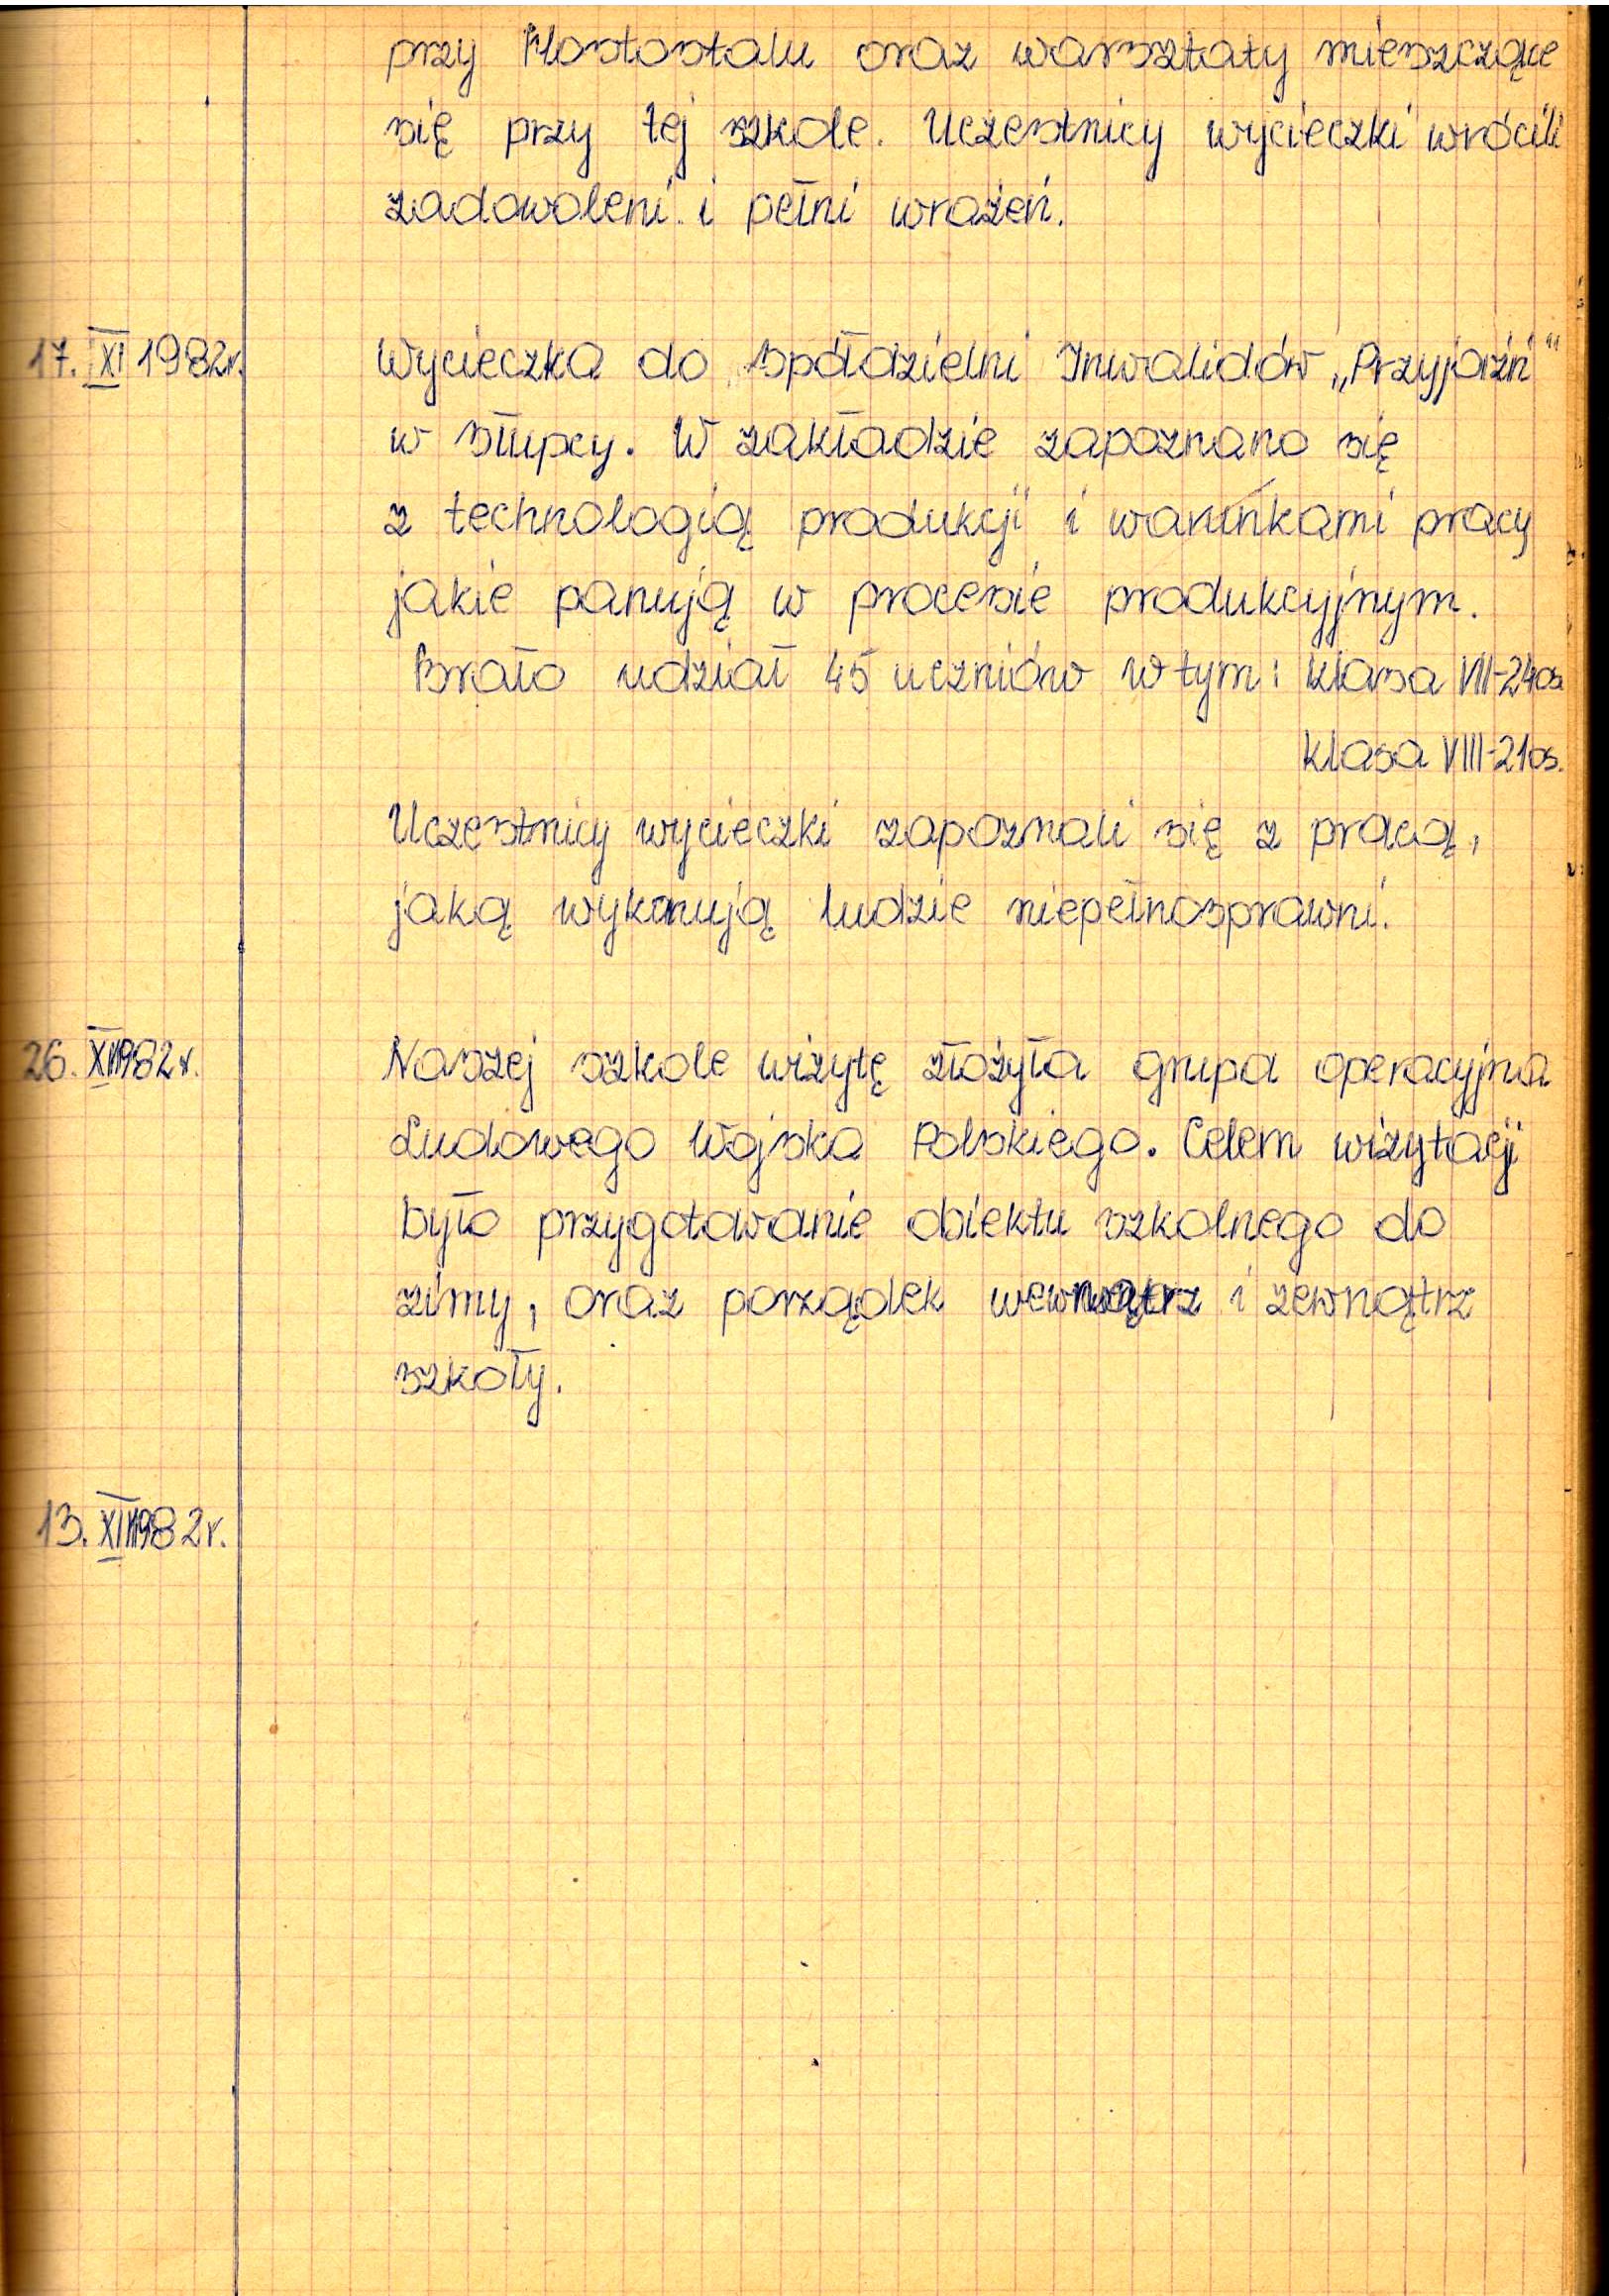 przy Mostostalu oraz warsztaty mieszczące
się przy tej szkole. Uczestnicy wycieczki wrócili
zadowoleni i pełni wrażeń.
17. XI 1982r. Wycieczka do Spółdzielni Inwalidów „Przyjaźń"
w Słupcy. W zakładzie zapoznano się
z technologią produkcji i warunkami pracy
jakie panują w procesie produkcyjnym.
Brało udział 45 uczniów w tym: klasa VII-24os.
klasa VIII-21os.
Uczestnicy wycieczki zapoznali się z pracą,
jaką wykonują ludzie niepełnosprawni.
26. XI 1982r. Naszej szkole wizytę złożyła grupa operacyjna
Ludowego Wojska Polskiego. Celem wizytacji
było przygotowanie obiektu szkolnego do
zimy, oraz porządek wewnątrz i zewnątrz
szkoły.
13. XII 1982r.